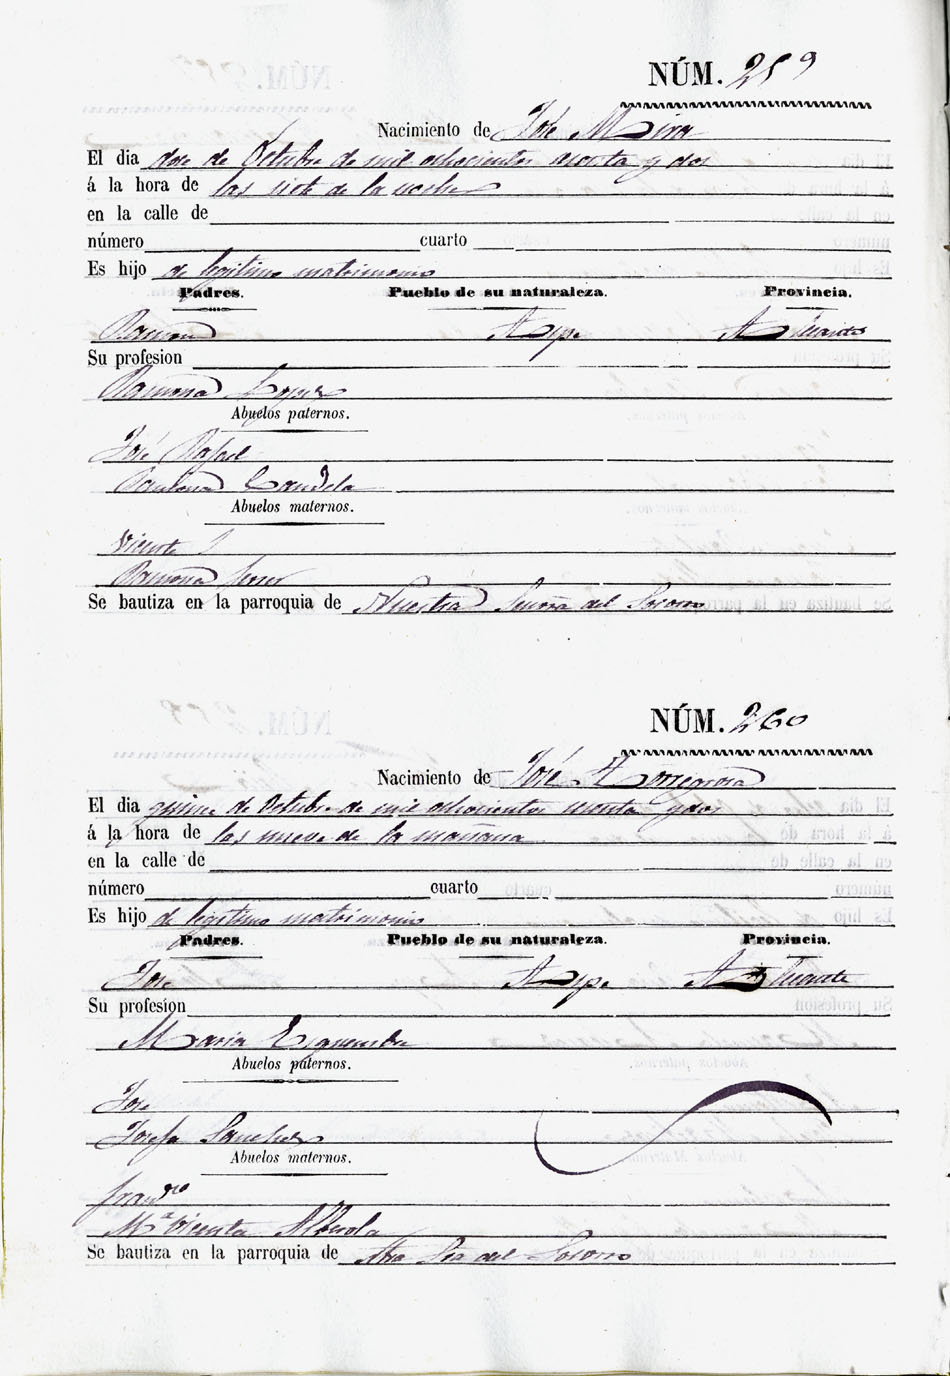 NÚM. 259
Nacimiento de José Mira
El dia doce de Octubre de mil ochocientos sesenta y dos
á la hora de las siete de la noche
en la calle de
número cuarto
Es hijo de legitimo matrimonio
Padres. Pueblo de su naturaleza. Provincia.
Ramon Aspe Alicante
Su profesion
Ramona Lopez
Abuelos paternos.
José Rafael
Candela
Abuelos maternos.
Vicente
Ramona
Se bautiza en la parroquia de Nuestra Señora del Socorro
NÚM. 260
Nacimiento de José Torregrosa
El dia quince de Octubre de mil ochocientos sesenta y dos
á la hora de las nueve de la mañana
en la calle de
número cuarto
Es hijo de legitimo matrimonio
Padres. Pueblo de su naturaleza. Provincia.
José Aspe Alicante
Su profesion
Maria
Abuelos paternos.
José
Josefa Sanchez
Abuelos maternos.
Franco
Ma Vicenta
Se bautiza en la parroquia de Ntra Sra del Socorro